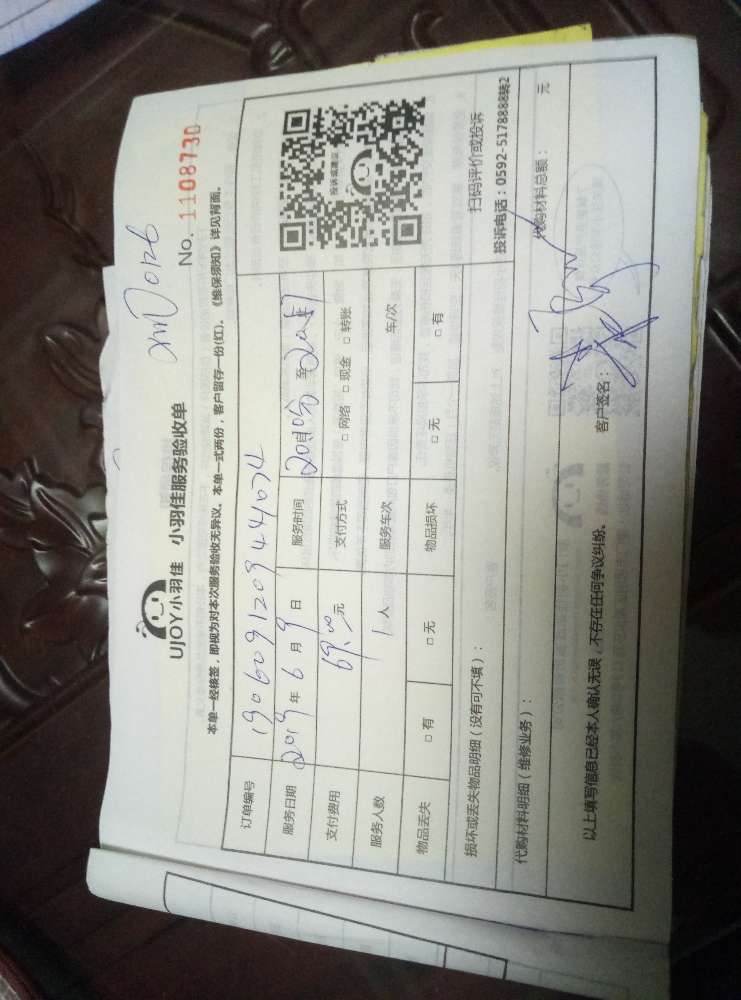 UJOY小羽佳 小羽佳服务验收单
No. 1108730
本单一经核签，即视为对本次服务验收无异议。本单一式两份，客户留存一份(红)。《维保须知》详见背面。
订单编号 190609120944074
服务日期 2019 年 6 月 9 日 服务时间 至
支付费用 69.00 元 支付方式 □ 网络 □ 现金 □ 转账
服务人数 1 人 服务车次 车/次
物品丢失 □ 有 □ 无 物品损坏 □ 无 □ 有
投诉或建议
扫码评价或投诉
投诉电话：0592-5178888转2
损坏或丢失物品明细（没有可不填）：
代购材料明细（维修业务）： 代购材料总额： 元
以上填写信息已经本人确认无误，不存在任何争议纠纷。 客户签名：